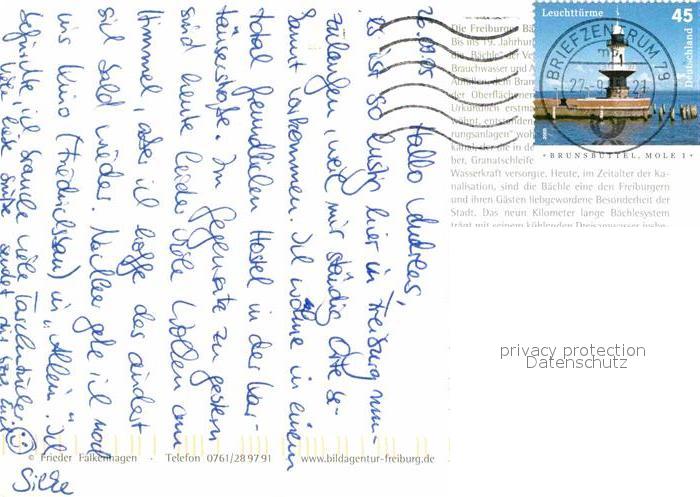 26.09.05 Hallo Andreas,
es ist so lustig hier in Freiburg rum-
zulaufen, weil mir ständig Orte be-
kannt vorkommen. Ich wohne in einem
total freundlichen Hostel in der Kar-
täuserstraße. Im Gegensatz zu gestern
sind heute leider viele Wolken am
Himmel, aber ich hoffe das ändert
sich bald wieder. Nachher gehe ich noch
ins Kino (Friedrichsbau) in "Allein". Ich
befürchte, ich brauche viele Taschentücher
Viele liebe Grüße sendet dir
Silke
Die Freiburger Bä
Bis ins 19. Jahrhun
die Bächle der Ve
Brauchwasser und A
der Oberflächen
Urkundlich erstma
wähnt, entstanden
rungsanlagen" woh
kanal, der die in de
ber, Granatschleife
Wasserkraft versorgte. Heute, im Zeitalter der Ka-
nalisation, sind die Bächle eine den Freiburgern
und ihren Gästen liebgewordene Besonderheit der
Stadt. Das neun Kilometer lange Bächlesystem
trägt mit seinem kühlenden Dreisamwasser insbe-
Leuchttürme 45
Deutschland
BRIEFZENTRUM 79
• BRUNSBÜTTEL, MOLE 1 •
privacy protection
Datenschutz
© Frieder Falkenhagen · Telefon 0761/28 97 91 · www.bildagentur-freiburg.de